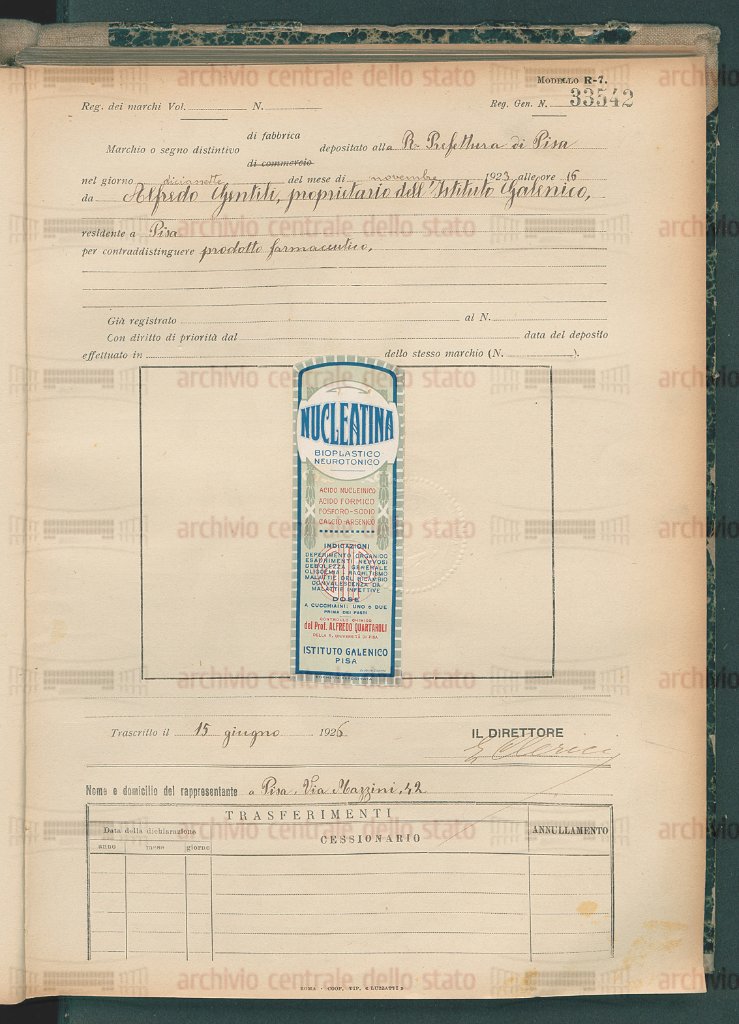 MODELLO R-7.
Reg. dei marchi Vol. N. Reg. Gen. N. 33542
Marchio o segno distintivo di fabbrica di commercio depositato alla R. Prefettura di Pisa
nel giorno diciassette del mese di novembre 1923 alle ore 16
da Alfredo Gentili, proprietario dell'Istituto Galenico,
residente a Pisa
per contraddistinguere prodotto farmaceutico.
Già registrato al N.
Con diritto di priorità dal data del deposito
effettuato in dello stesso marchio (N. ).
NUCLEATINA
BIOPLASTICO
NEUROTONICO
ACIDO NUCLEINICO
ACIDO FORMICO
FOSFORO-SODIO
CALCIO-ARSENICO
INDICAZIONI
DEPERIMENTO ORGANICO
ESAURIMENTI NERVOSI
DEBOLEZZA GENERALE
OLIGOEMIA RACHITISMO
MALATTIE DEL RICAMBIO
CONVALESCENZA DA
MALATTIE INFETTIVE
DOSE
A CUCCHIAINI: UNO O DUE
PRIMA DEI PASTI
CONTROLLO CHIMICO
del Prof. ALFREDO QUARTAROLI
DELLA R. UNIVERSITÀ DI PISA
ISTITUTO GALENICO
PISA
Trascritto il 15 giugno 1926
IL DIRETTORE
Nome e domicilio del rappresentante a Pisa, Via Mazzini, 42
TRASFERIMENTI
Data della dichiarazione CESSIONARIO ANNULLAMENTO
anno mese giorno
ROMA - COOP. TIP. «LUZZATTI»
archivio centrale dello stato